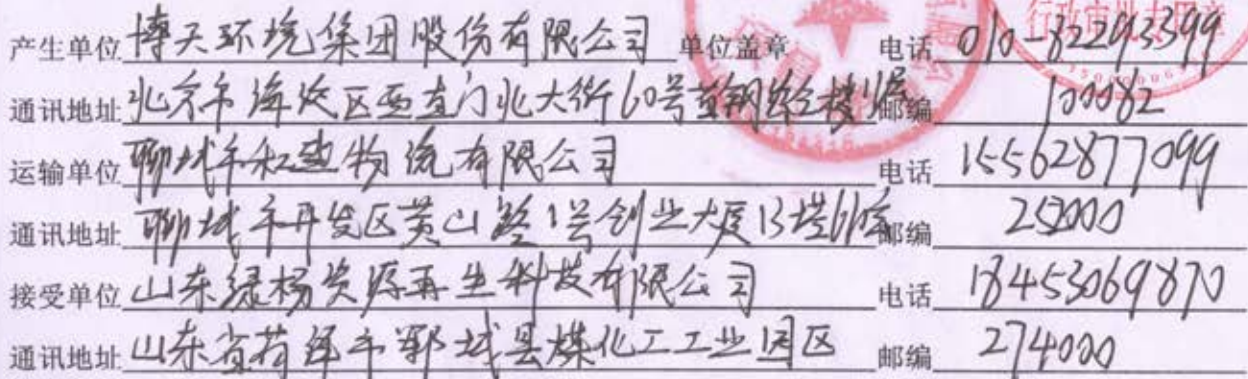 产生单位 博天环境集团股份有限公司 单位盖章 电话 010-82293399
通讯地址 北京市海淀区西直门北大街60号首钢综合楼 邮编 100082
运输单位 聊城市和达物流有限公司 电话 15562877099
通讯地址 聊城市开发区黄山路1号创业大厦B塔 邮编 252000
接受单位 山东绿杨资源再生科技有限公司 电话 18453069870
通讯地址 山东省菏泽市郓城县煤化工工业园区 邮编 274000